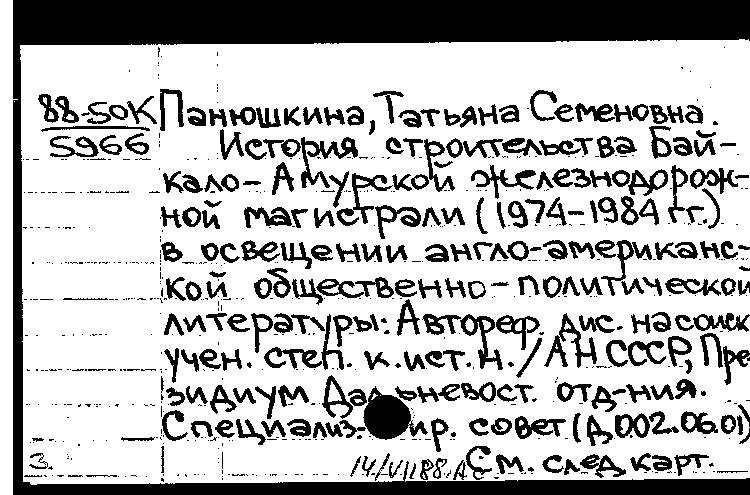 88-50К Панюшкина, Татьяна Семеновна.
5966 История строительства Бай-
кало-Амурской железнодорож-
ной магистрали (1974-1984 гг.)
в освещении англо-американс-
кой общественно-политической
литературы: Автореф. дис. на соиск
учен. степ. к.ист.н./АН СССР, Пре
зидиум Дальневост. отд-ния.
Специализ. совет (Д.002.06.01)
3. См. след. карт.